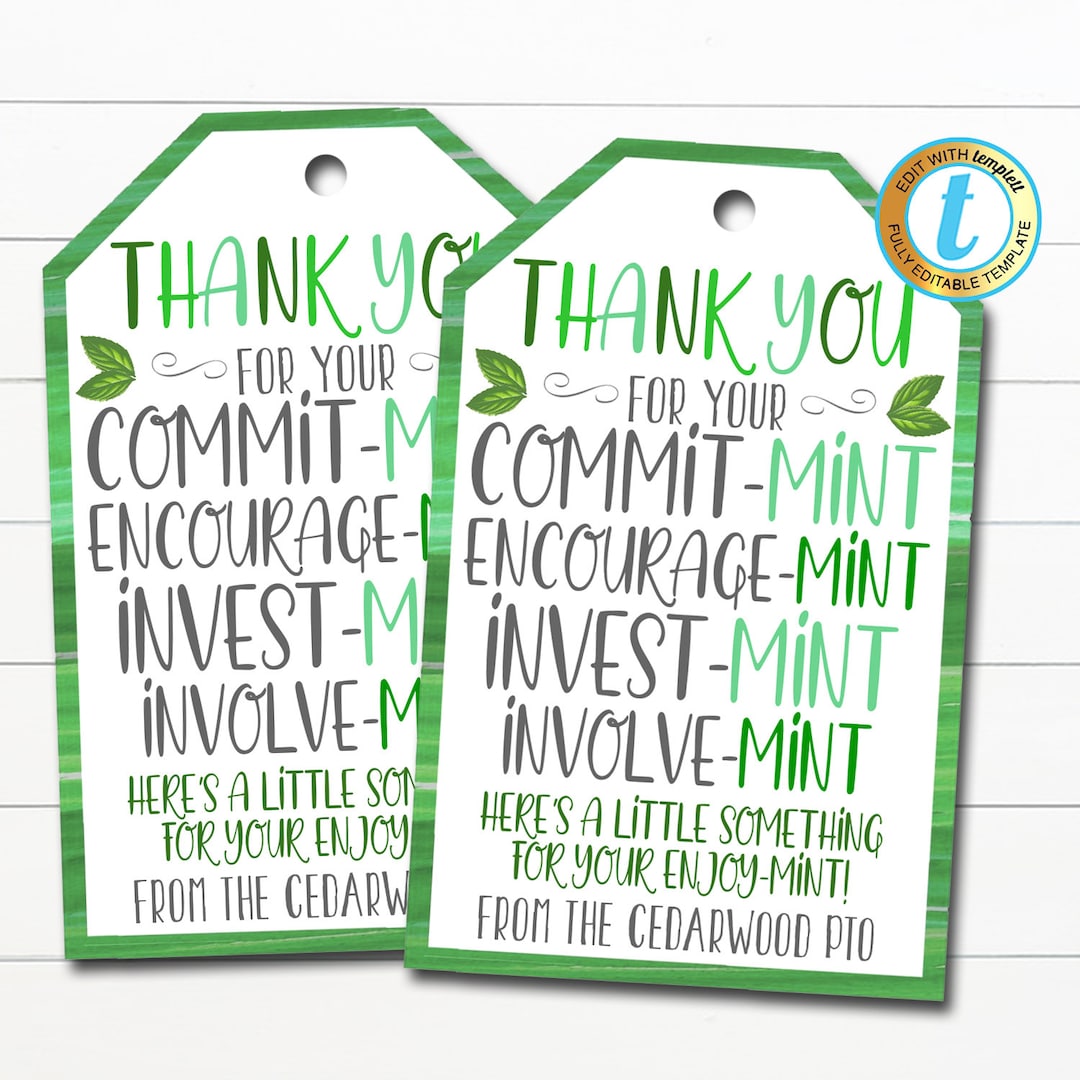 THANK YOU
FOR YOUR
COMMIT-M
ENCOURAGE-
INVEST-M
INVOLVE-M
HERE'S A LITTLE SOM
FOR YOUR ENJOY-
FROM THE CEDARW
THANK YOU
FOR YOUR
COMMIT-MINT
ENCOURAGE-MINT
INVEST-MINT
INVOLVE-MINT
HERE'S A LITTLE SOMETHING
FOR YOUR ENJOY-MINT!
FROM THE CEDARWOOD PTO
EDIT WITH templett
t
FULLY EDITABLE TEMPLATE